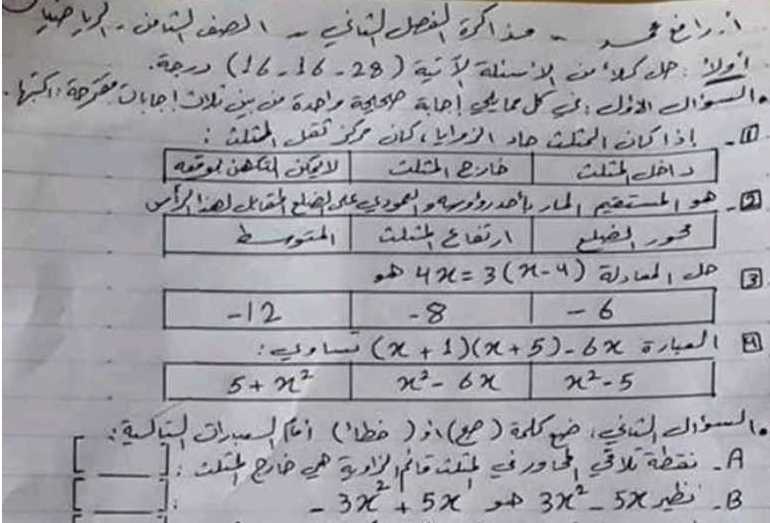 أ. رامح محمد - مذاكرة الفصل الثاني - الصف الثامن - الرياضيات
أولاً: حل كلاً من الأسئلة الآتية (28 - 16 - 16) درجة.
• السؤال الأول: في كل مما يلي إجابة صحيحة واحدة من بين ثلاث إجابات مقترحة: اكتبها.
1- إذا كان المثلث حاد الزوايا، كان مركز ثقل المثلث:
داخل المثلث | خارج المثلث | لا يمكن التكهن بموقعه
2- هو المستقيم المار بأحد رؤوسه والعمودي على الضلع المقابل لهذا الرأس
محور الضلع | ارتفاع المثلث | المتوسط
3 حل المعادلة 4x = 3(x-4) هو
-6 | -8 | -12
4 العبارة (x+1)(x+5)-6x تساوي:
x²-5 | x²-6x | 5+x²
• السؤال الثاني: ضع كلمة (صح) أو (خطأ) أمام العبارات التالية:
A- نقطة تلاقي المحاور في المثلث قائم الزاوية هي خارج المثلث: [____]
B- نظير 3x²-5x هو -3x²+5x: [____]